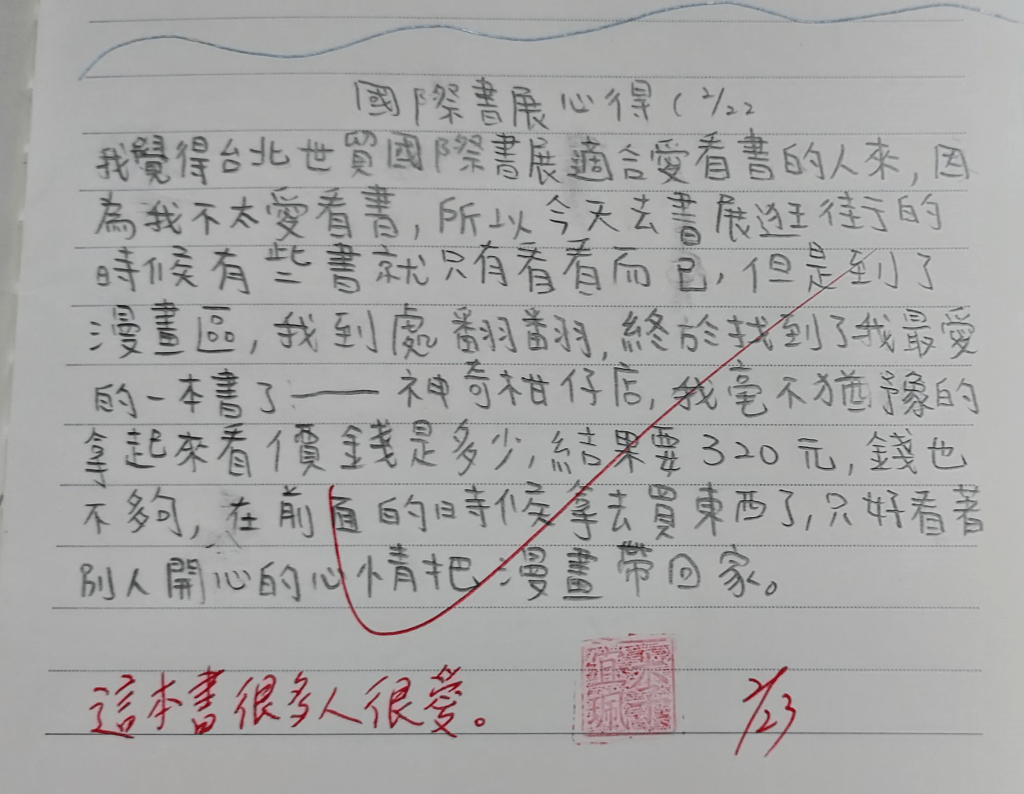 國際書展心得(2/22
我覺得台北世貿國際書展適合愛看書的人來,因
為我不太愛看書,所以今天去書展逛街的
時候有些書就只有看看而已,但是到了
漫畫區,我到處翻翻,終於找到了我最愛
的一本書了——神奇柑仔店,我毫不猶豫的
拿起來看價錢是多少,結果要320元,錢也
不夠,在前面的時候拿去買東西了,只好看著
別人開心的心情把漫畫帶回家。
這本書很多人很愛。
2/23